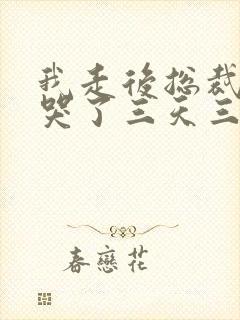 我走後總裁
哭了三天三
春戀花